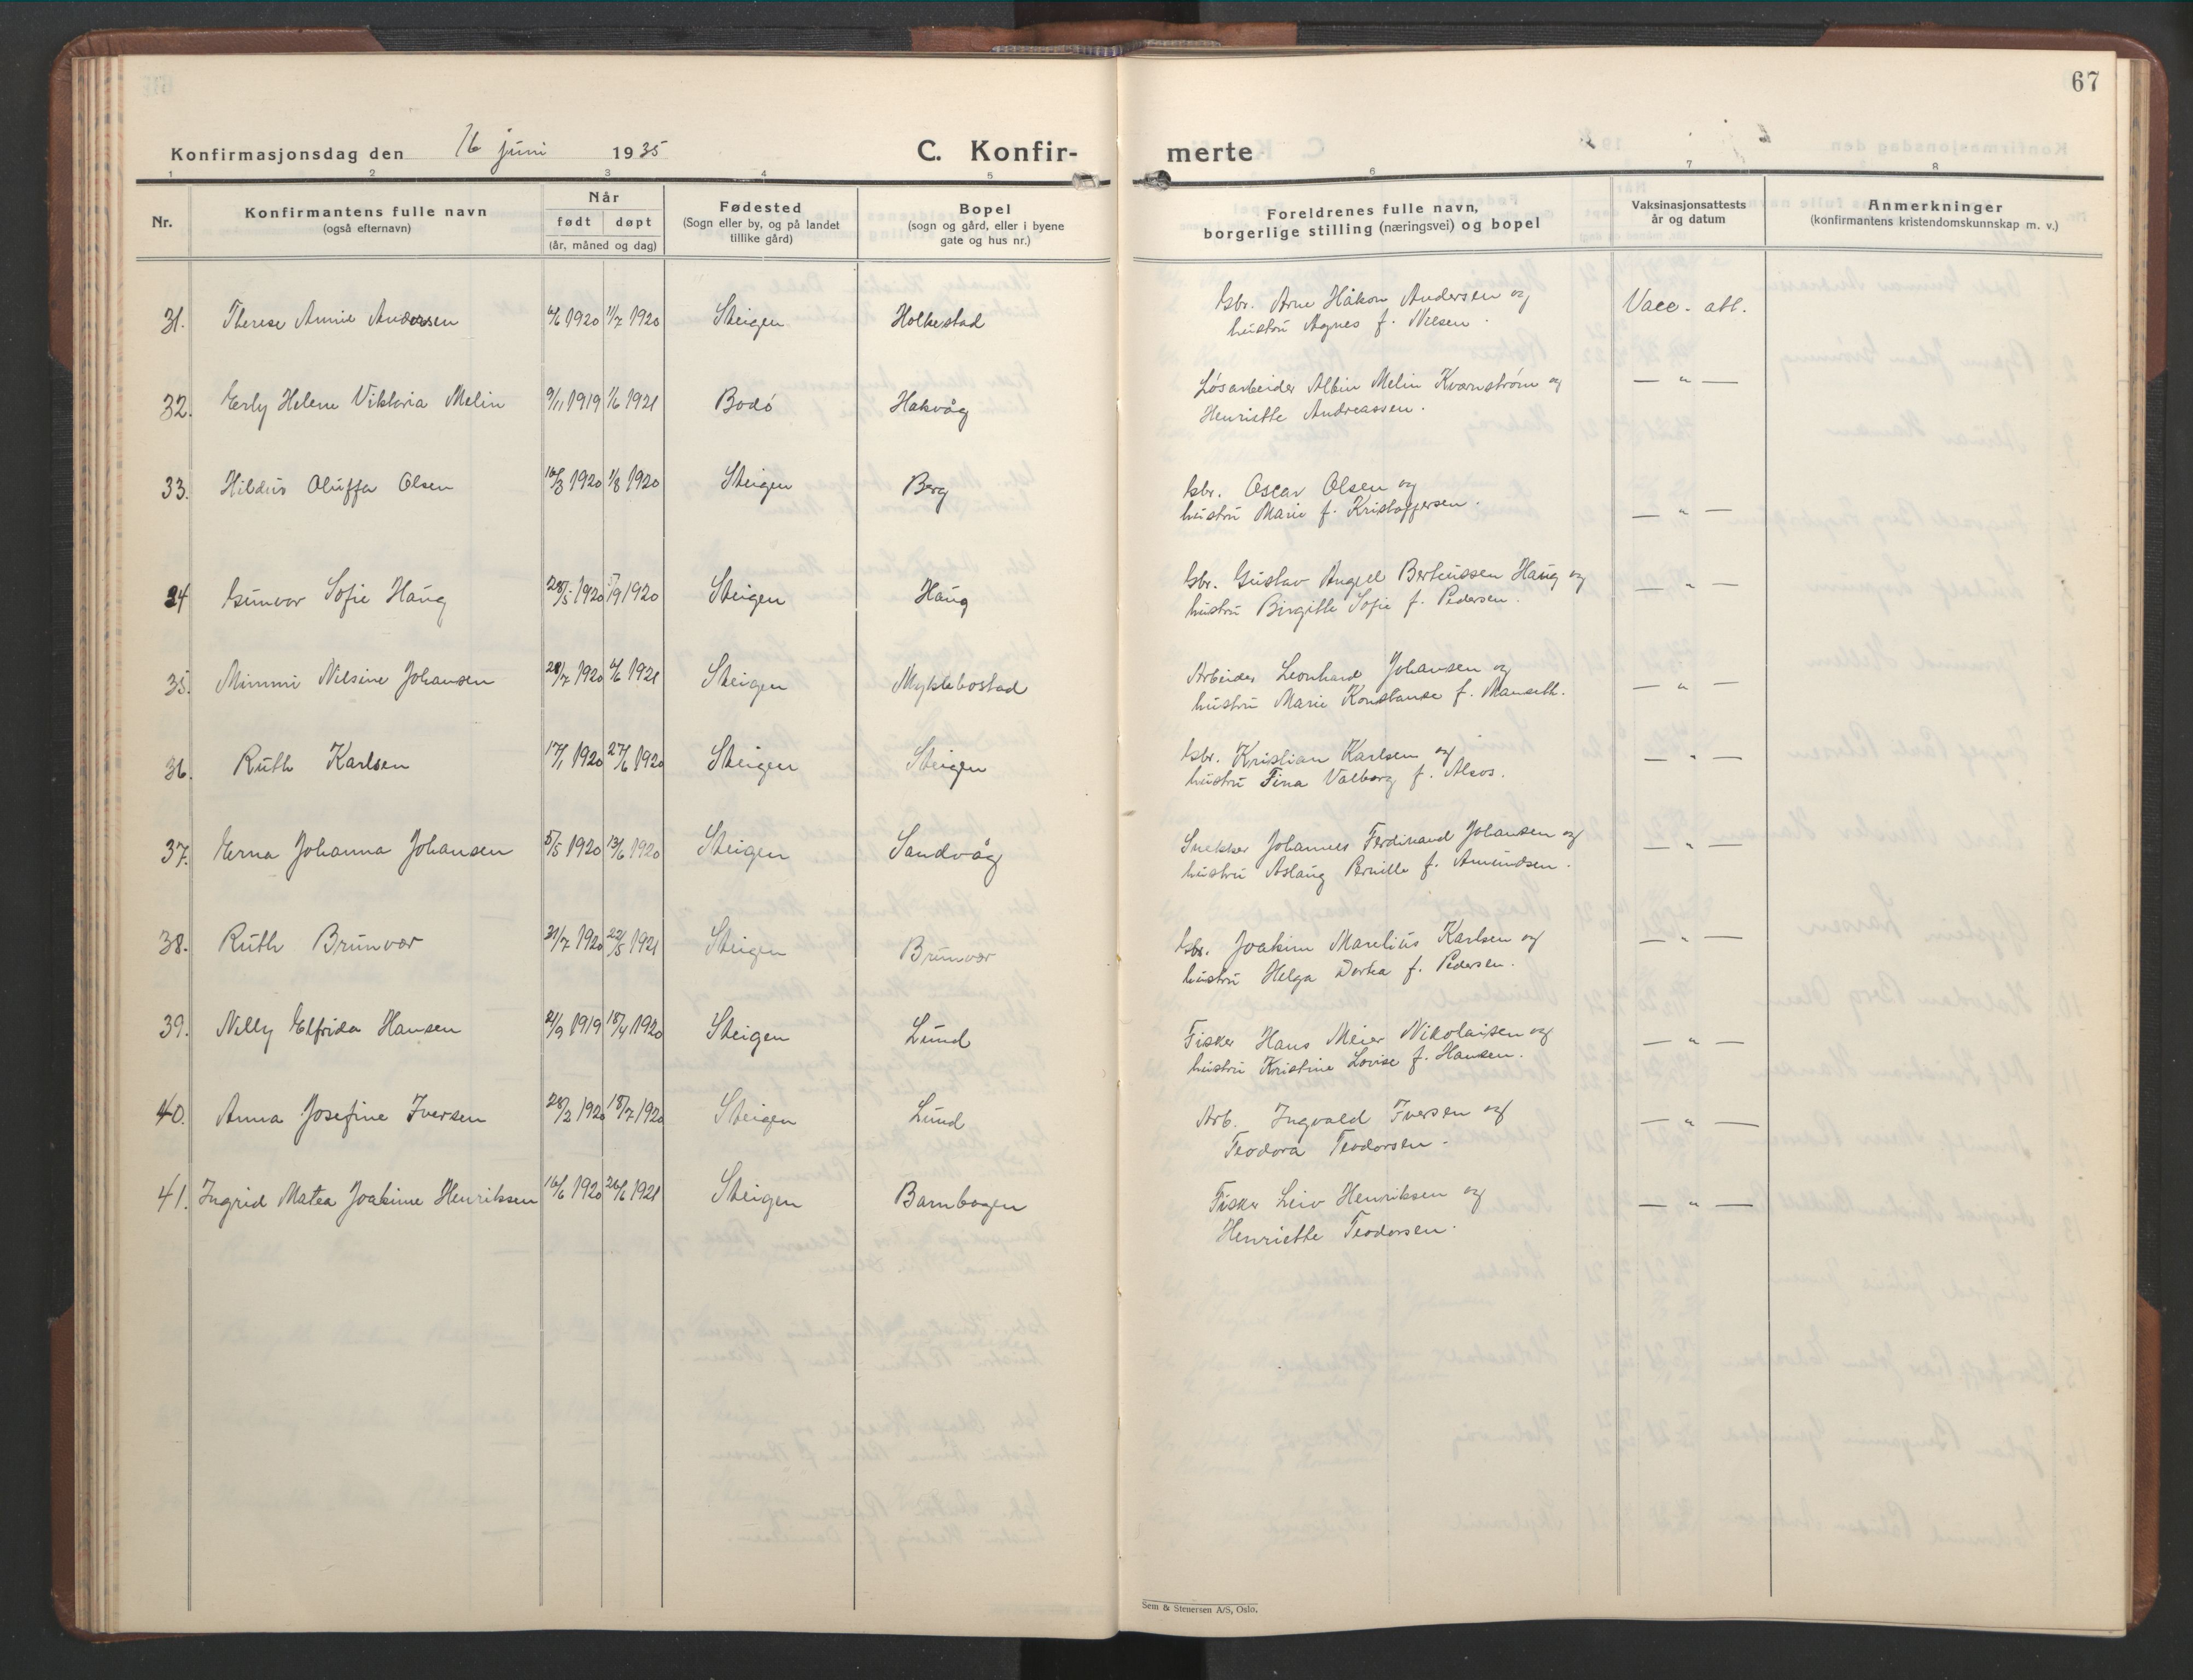 67
Konfirmasjonsdag den 16 juni 1935 C. Konfir- merte
1 2 3 4 5 6 7 8
Nr. Konfirmantens fulle navn (også efternavn) Når født døpt (år, måned og dag) Fødested (Sogn eller by, og på landet tillike gård) Bopel (sogn og gård, eller i byene gate og hus nr.) Foreldrenes fulle navn, borgerlige stilling (næringsvei) og bopel Vaksinasjonsattests år og datum Anmerkninger (konfirmantens kristendomskunnskap m. v.)
31. Therese Annie Andersen 6/6 1920 11/7 1920 Steigen Holkestad Gbr. Arne Håkon Andersen og Vacc. att.
hustru Agnes f. Nilsen.
32. Erly Helene Viktoria Melin 9/11 1919 1/6 1921 Bodö Hakvåg Løsarbeider Albin Melin Kvarnstrøm og — " —
Henriette Andreassen.
33. Hildus Oluffa Olsen 16/3 1920 1/8 1920 Steigen Berg Gbr. Oscar Olsen og
hustru Marie f. Kristoffersen. — " —
34 Gunvor Sofie Haug 28/5 1920 /9 1920 Steigen Haug Gbr. Gustav Angell Berteussen Haug og — " —
hustru Birgitte Sofie f. Pedersen.
35. Mimmi Nilsine Johansen 28/7 1920 6/6 1921 Steigen Myklebostad Arbeider Leonhard Johansen og — " —
hustru Marie Konstanse f. Manseth.
36. Ruth Karlsen 17/1 1920 27/6 1920 Steigen Steigen Gbr. Kristian Karlsen og — " —
hustru Fina Valborg f. Alsos.
37. Erna Johanna Johansen 5/5 1920 13/6 1920 Steigen Sandvåg Snekker Johannes Ferdinand Johansen og — " —
hustru Aslaug Pernille f. Amundsen.
38. Ruth Brunvær 31/7 1920 22/5 1921 Steigen Brunvær Gbr. Joakim Marelius Karlsen og — " —
hustru Helga Dortea f. Pedersen.
39. Nelly Elfrida Hansen 21/9 1919 18/4 1920 Steigen Lund Fisker Hans Meier Nikolaisen og — " —
hustru Kristine Lovise f. Hansen.
40. Anna Josefine Iversen 28/2 1920 18/7 1920 Steigen Lund Arb. Ingvald Iversen og — " —
Teodora Teodorsen.
41. Ingrid Matea Joakime Henriksen 16/6 1920 26/6 1921 Steigen Barnbogen Fisker Leiv Henriksen og — " —
Henriette Teodorsen.
Sem & Stenersen A/S, Oslo.